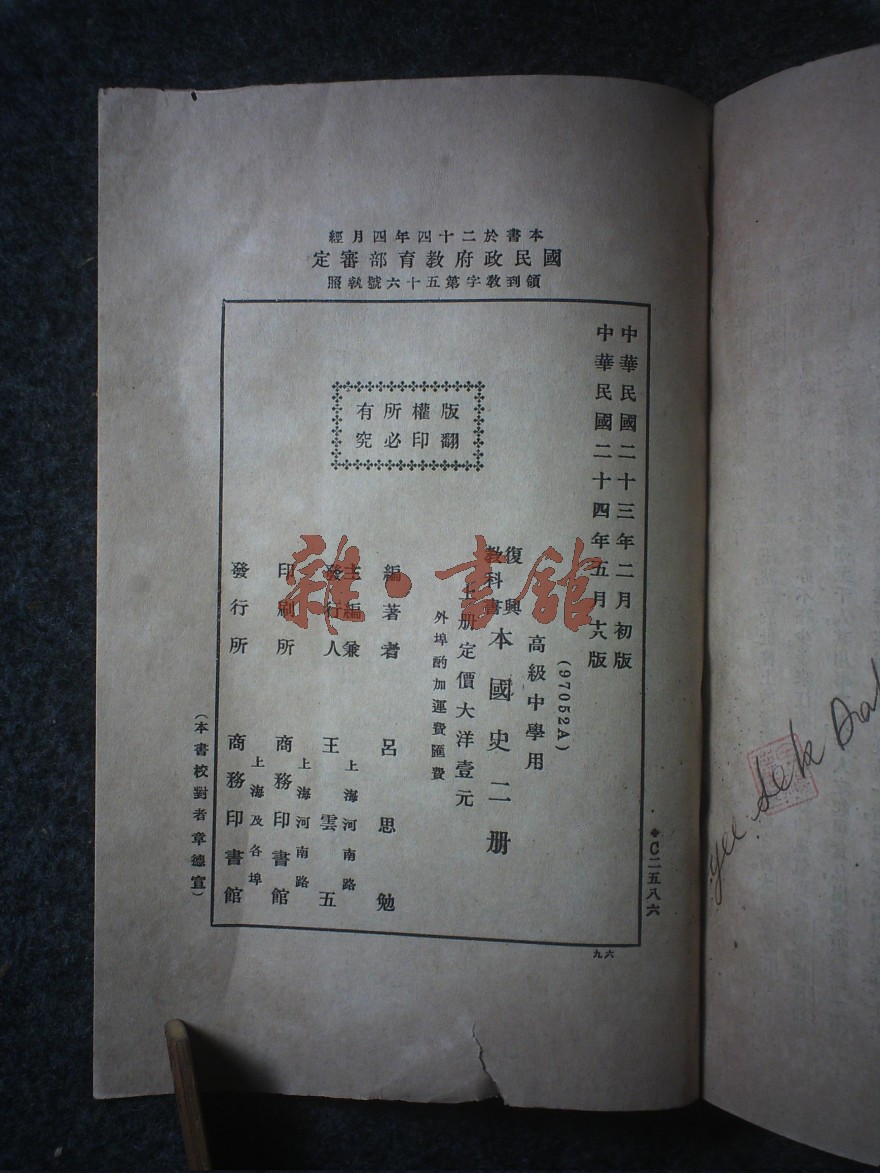 本書於二十四年四月經
國民政府教育部審定
領到教字第五十六號執照
中華民國二十三年二月初版
中華民國二十四年五月六版
版權所有
翻印必究
(97052A)
高級中學用
復興教科書 本國史二册
上册定價大洋壹元
外埠酌加運費匯費
編著者 呂思勉
主編兼發行人 王雲五
上海河南路
印刷所 商務印書館
上海河南路
發行所 商務印書館
上海及各埠
(本書校對者章德宣)
◆C二五八六
六九
雜·書館